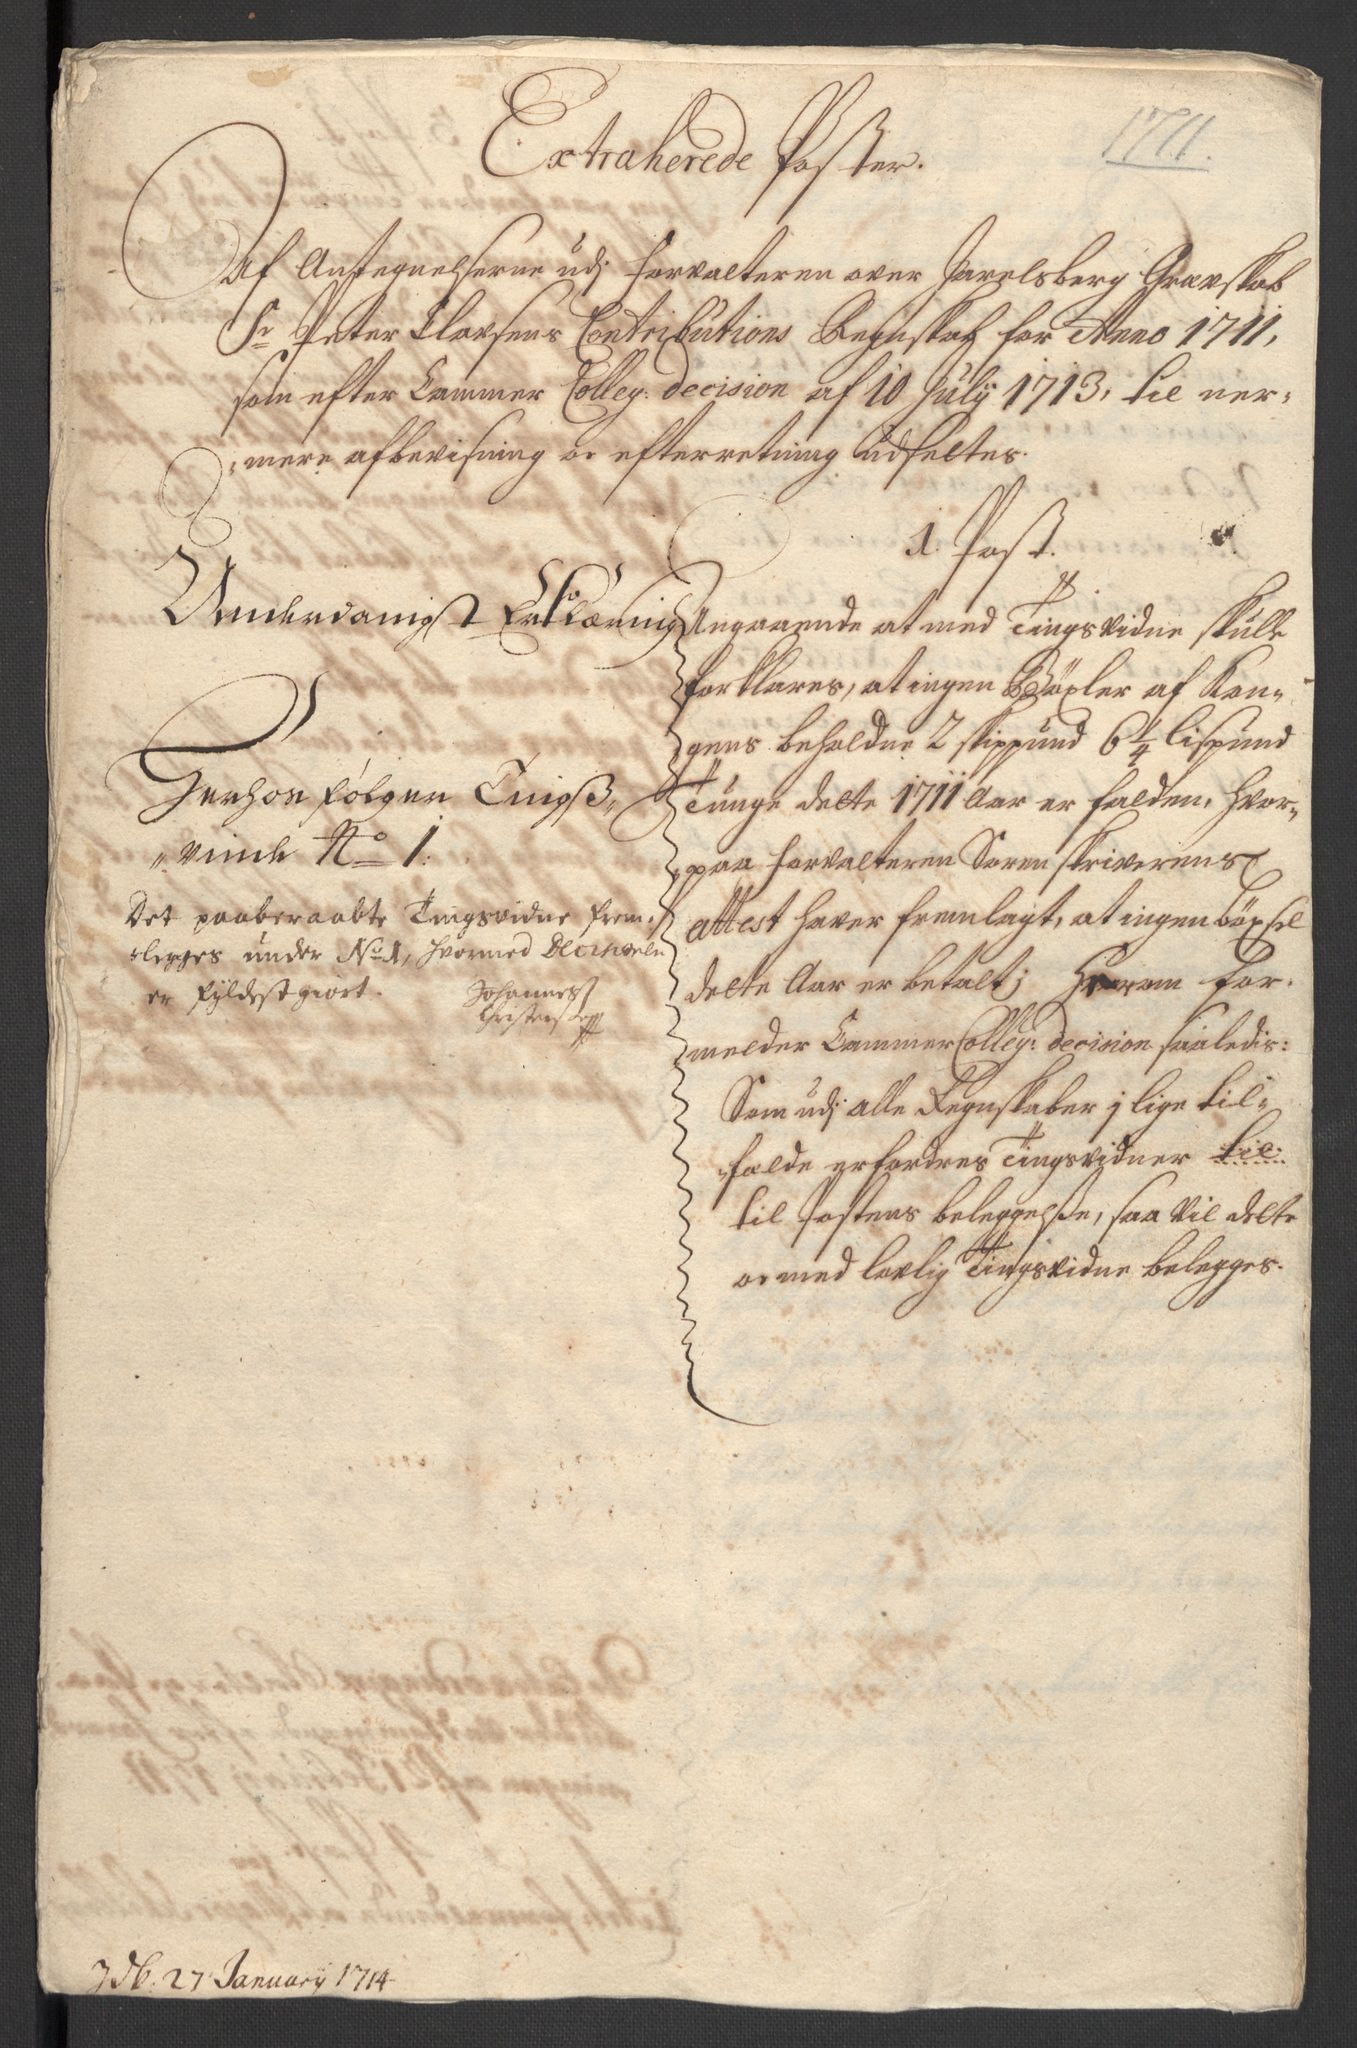 1711.
Extraherede Poster.
Af Antegnelserne udj Forvalteren over Jarelsberg Gravskab
Sr Peter Clavsens Contributions Regnskab for Anno 1711,
som efter Cammer Colleg: decision af 10 Julij 1713, til ner-
-mere afbevisning oc efterretning udsettes.
Underdanigst Erklæring
Herhos følger Tingß-
-vinde No 1.
Det paaberaabte Tingsvidne frem-
-legges under No 1, hvormed Decisionen
er fyldestgiort.
Johannes
Christensen
1. Post.
Angaaende at med Tingsvidne skulle
forklares, at ingen Böxler af Kon-
gens beholdne 2 skippund 6 1/4 lispund
Tunge dette 1711 Aar er falden, hvor-
-paa Forvalteren Sorenskriverens
attest haver fremlagt, at ingen böxsel
dette Aar er betalt; Hvorom for-
melder Cammer Colleg: decision saaledis:
Som udj alle Regnskaber j lige til-
-falde erfordres Tingsvidner til
til Postens beleggelse, saa vil dette
oc med lovlig Tingsvidne belegges.
27 January 1714